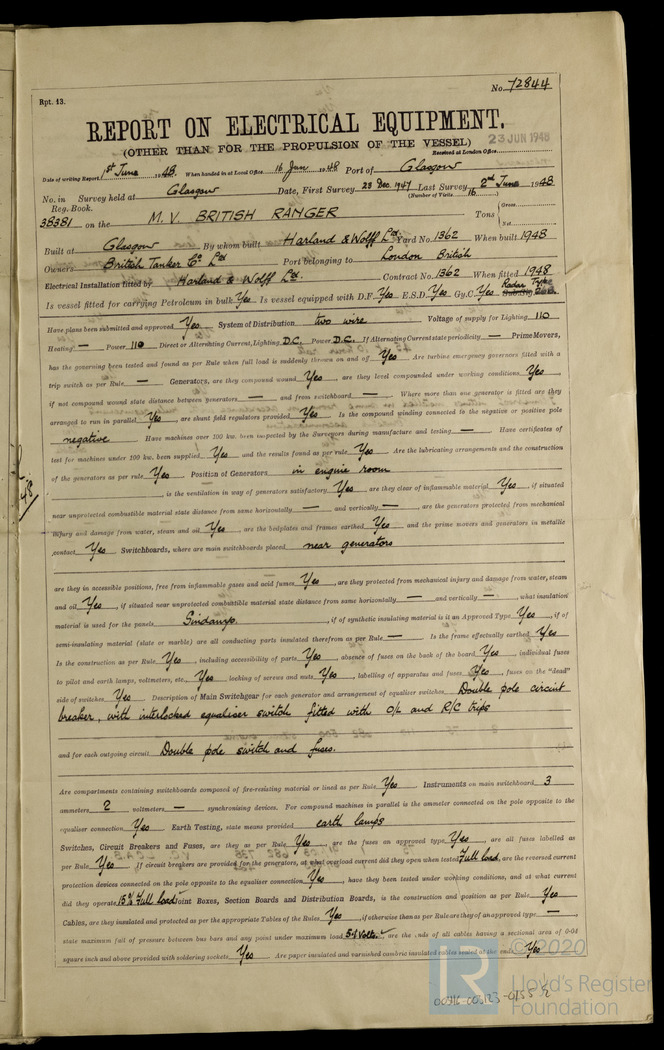 No. 72844
Rpt. 13.
REPORT ON ELECTRICAL EQUIPMENT.
(OTHER THAN FOR THE PROPULSION OF THE VESSEL)
23 JUN 1948
Received at London Office
Date of writing Report 1st June 1948. When handed in at Local Office 16 Jun 1948 Port of Glasgow
No. in Survey held at Glasgow Date, First Survey 23 Dec. 1947 Last Survey 2nd June 1948
Reg. Book. (Number of Visits 16)
38381 on the M.V. BRITISH RANGER Tons { Gross Net
Built at Glasgow By whom built Harland & Wolff Ltd Yard No. 1362 When built 1948
Owners British Tanker Co Ltd Port belonging to London British
Electrical Installation fitted by Harland & Wolff Ltd. Contract No. 1362 When fitted 1948
Is vessel fitted for carrying Petroleum in bulk Yes. Is vessel equipped with D.F. Yes E.S.D. Yes Gy.C. Yes Radar
Have plans been submitted and approved Yes System of Distribution two wire Voltage of supply for Lighting 110
Heating — Power 110 Direct or Alternating Current, Lighting D.C. Power D.C. If Alternating Current state periodicity — Prime Movers,
has the governing been tested and found as per Rule when full load is suddenly thrown on and off Yes Are turbine emergency governors fitted with a
trip switch as per Rule — Generators, are they compound wound Yes, are they level compounded under working conditions Yes
if not compound wound state distance between generators — and from switchboard — Where more than one generator is fitted are they
arranged to run in parallel Yes, are shunt field regulators provided Yes Is the compound winding connected to the negative or positive pole
negative Have machines over 100 kw. been inspected by the Surveyors during manufacture and testing — Have certificates of
test for machines under 100 kw. been supplied Yes and the results found as per rule Yes Are the lubricating arrangements and the construction
of the generators as per rule Yes Position of Generators in engine room
is the ventilation in way of generators satisfactory Yes are they clear of inflammable material Yes, if situated
near unprotected combustible material state distance from same horizontally — and vertically —, are the generators protected from mechanical
injury and damage from water, steam and oil Yes are the bedplates and frames earthed Yes and the prime movers and generators in metallic
contact Yes Switchboards, where are main switchboards placed near generators
are they in accessible positions, free from inflammable gases and acid fumes Yes, are they protected from mechanical injury and damage from water, steam
and oil Yes, if situated near unprotected combustible material state distance from same horizontally — and vertically —, what insulation
material is used for the panels Sindanyo, if of synthetic insulating material is it an Approved Type Yes, if of
semi-insulating material (slate or marble) are all conducting parts insulated therefrom as per Rule — Is the frame effectually earthed Yes
Is the construction as per Rule Yes, including accessibility of parts Yes, absence of fuses on the back of the board Yes, individual fuses
to pilot and earth lamps, voltmeters, etc., Yes locking of screws and nuts Yes, labelling of apparatus and fuses Yes, fuses on the "dead"
side of switches Yes Description of Main Switchgear for each generator and arrangement of equaliser switches Double pole circuit
breaker, with interlocked equaliser switch fitted with O/L and R/C trips
and for each outgoing circuit Double pole switch and fuses.
Are compartments containing switchboards composed of fire-resisting material or lined as per Rule Yes Instruments on main switchboard 3
ammeters 2 voltmeters — synchronising devices. For compound machines in parallel is the ammeter connected on the pole opposite to the
equaliser connection Yes Earth Testing, state means provided earth lamps
Switches, Circuit Breakers and Fuses, are they as per Rule Yes, are the fuses an approved type Yes, are all fuses labelled as
per Rule Yes If circuit breakers are provided for the generators, at what overload current did they open when tested Full load, are the reversed current
protection devices connected on the pole opposite to the equaliser connection Yes, have they been tested under working conditions, and at what current
did they operate 15% Full load Joint Boxes, Section Boards and Distribution Boards, is the construction and position as per Rule Yes
Cables, are they insulated and protected as per the appropriate Tables of the Rules Yes, if otherwise than as per Rule are they of an approved type —
state maximum fall of pressure between bus bars and any point under maximum load 5.1 Volts, are the ends of all cables having a sectional area of 0.04
square inch and above provided with soldering sockets Yes Are paper insulated and varnished cambric insulated cables sealed at the ends Yes
© 2020
LR
Lloyd's Register
Foundation